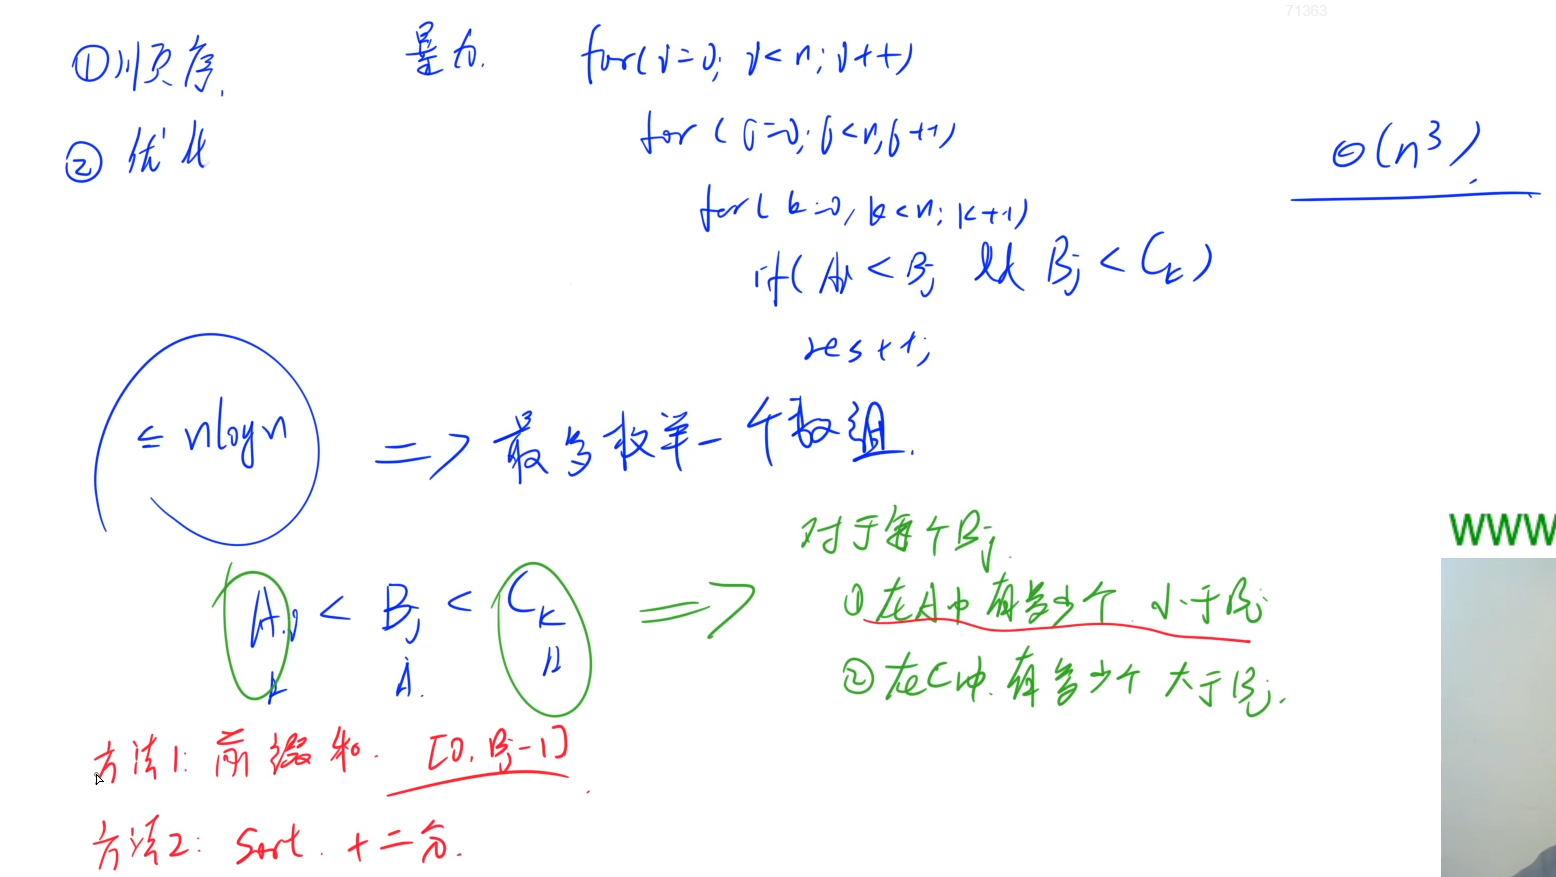 71363
①顺序.
暴力.
for(i=0; i<n; i++)
②优化
for(j=0; j<n; j++)
O(n³)
for(k=0; k<n; k++)
if(Ai<Bj && Bj<Ck)
res++;
≤ nlogn => 最多枚举一个数组.
对于每个Bj.
Ai < Bj < Ck =>
①在A中有多少个 小于Bj
②在C中.有多少个 大于Bj.
方法1: 前缀和. [0, Bj-1]
方法2: Sort. +二分.
WWW